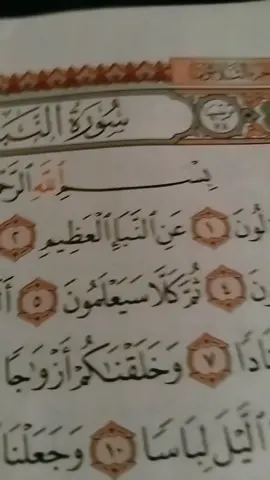 سُورَةُ النَّبَ
بِسْمِ اللَّهِ الرَّحْ
لُونَ ١ عَنِ النَّبَإِ الْعَظِيمِ ٢
نَ ٤ ثُمَّ كَلَّا سَيَعْلَمُونَ ٥ أَ
ادًا ٧ وَخَلَقْنَاكُمْ أَزْوَاجًا
اللَّيْلَ لِبَاسًا ١٠ وَجَعَلْنَا